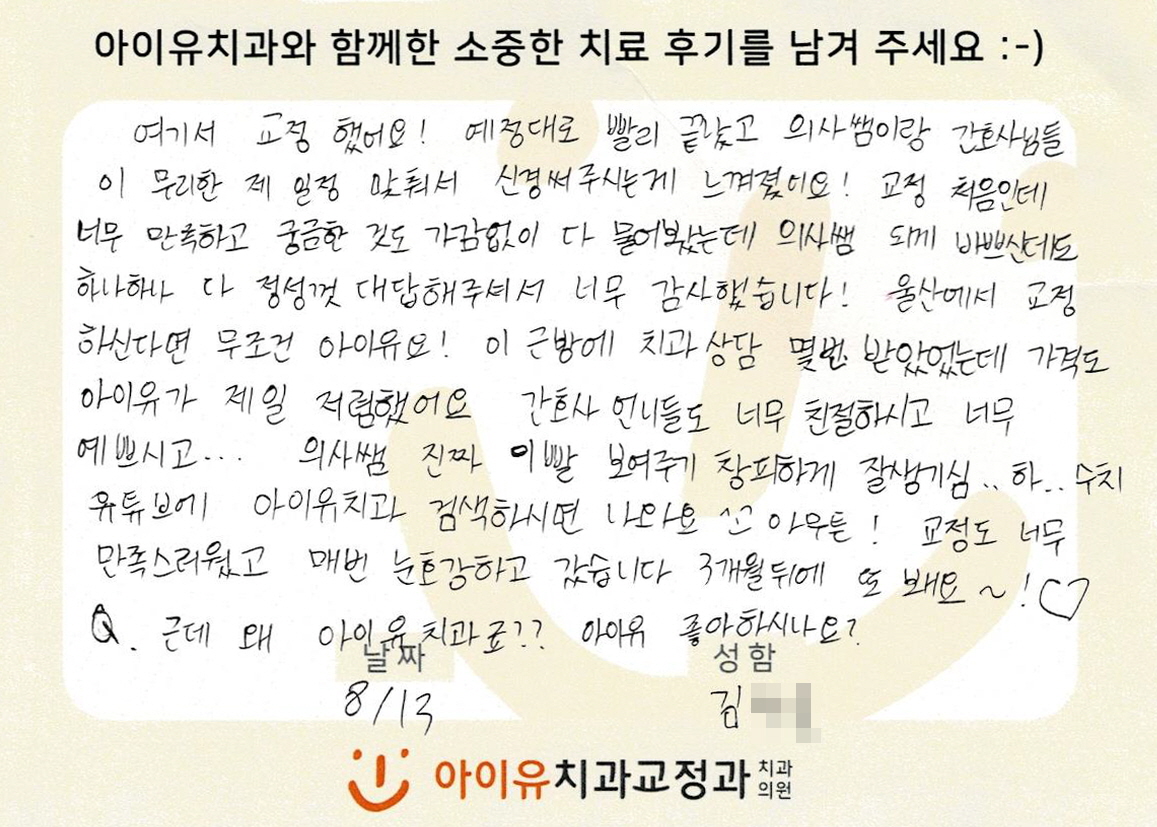 아이유치과와 함께한 소중한 치료 후기를 남겨 주세요 :-)
여기서 교정 했어요! 예정대로 빨리 끝났고 의사쌤이랑 간호사님들
이 무리한 제 일정 맞춰서 신경써주시는게 느껴졌어요! 교정 처음인데
너무 만족하고 궁금한 것도 가감없이 다 물어봤는데 의사쌤 되게 바쁘신데도
하나하나 다 정성껏 대답해주셔서 너무 감사했습니다! 울산에서 교정
하신다면 무조건 아이유요! 이 근방에 치과상담 몇번 받았었는데 가격도
아이유가 제일 저렴했어요 간호사 언니들도 너무 친절하시고 너무
예쁘시고... 의사쌤 진짜 이빨 보여주기 창피하게 잘생기심.. 하.. 수치
유튜브에 아이유치과 검색하시면 나와요 ^^ 아무튼! 교정도 너무
만족스러웠고 매번 눈호강하고 갔습니다 3개월뒤에 또 봬요~!♡
Q. 근데 왜 아이유치과죠?? 아이유 좋아하시나요?
날짜 성함
8/13 김
아이유치과교정과 치과
의원